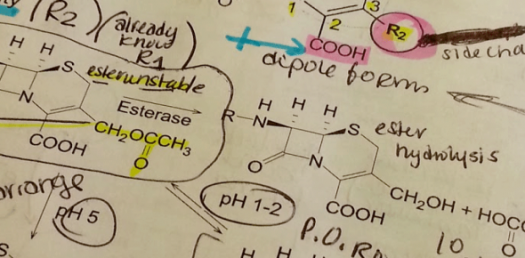 (R2) (already
know
R1
1
2
3
R2
COOH
side cha
dipole forms
H H
S
ester unstable
N
Esterase
CH2OCCH3
O
COOH
R N
H H H
S
O
N
ester
hydrolysis
CH2OH + HOCC
O
COOH
arrange
pH 5
pH 1-2
P.O. R
10
S
H H